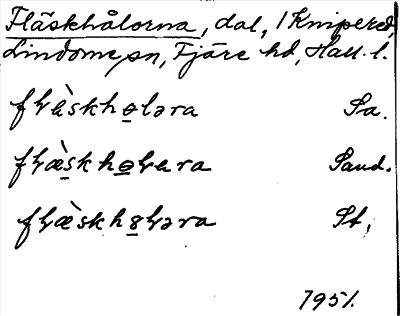 Fläskhålorna, dal, 1 Knipered,
Lindome sn, Fjäre hd, Hall. l.
fꞎä̀skho̲ləra Sa.
fꞎæ̀skho̲ꞎɐra Sand.
fꞎæ̀skh8̲ꞎəra St,
1951.